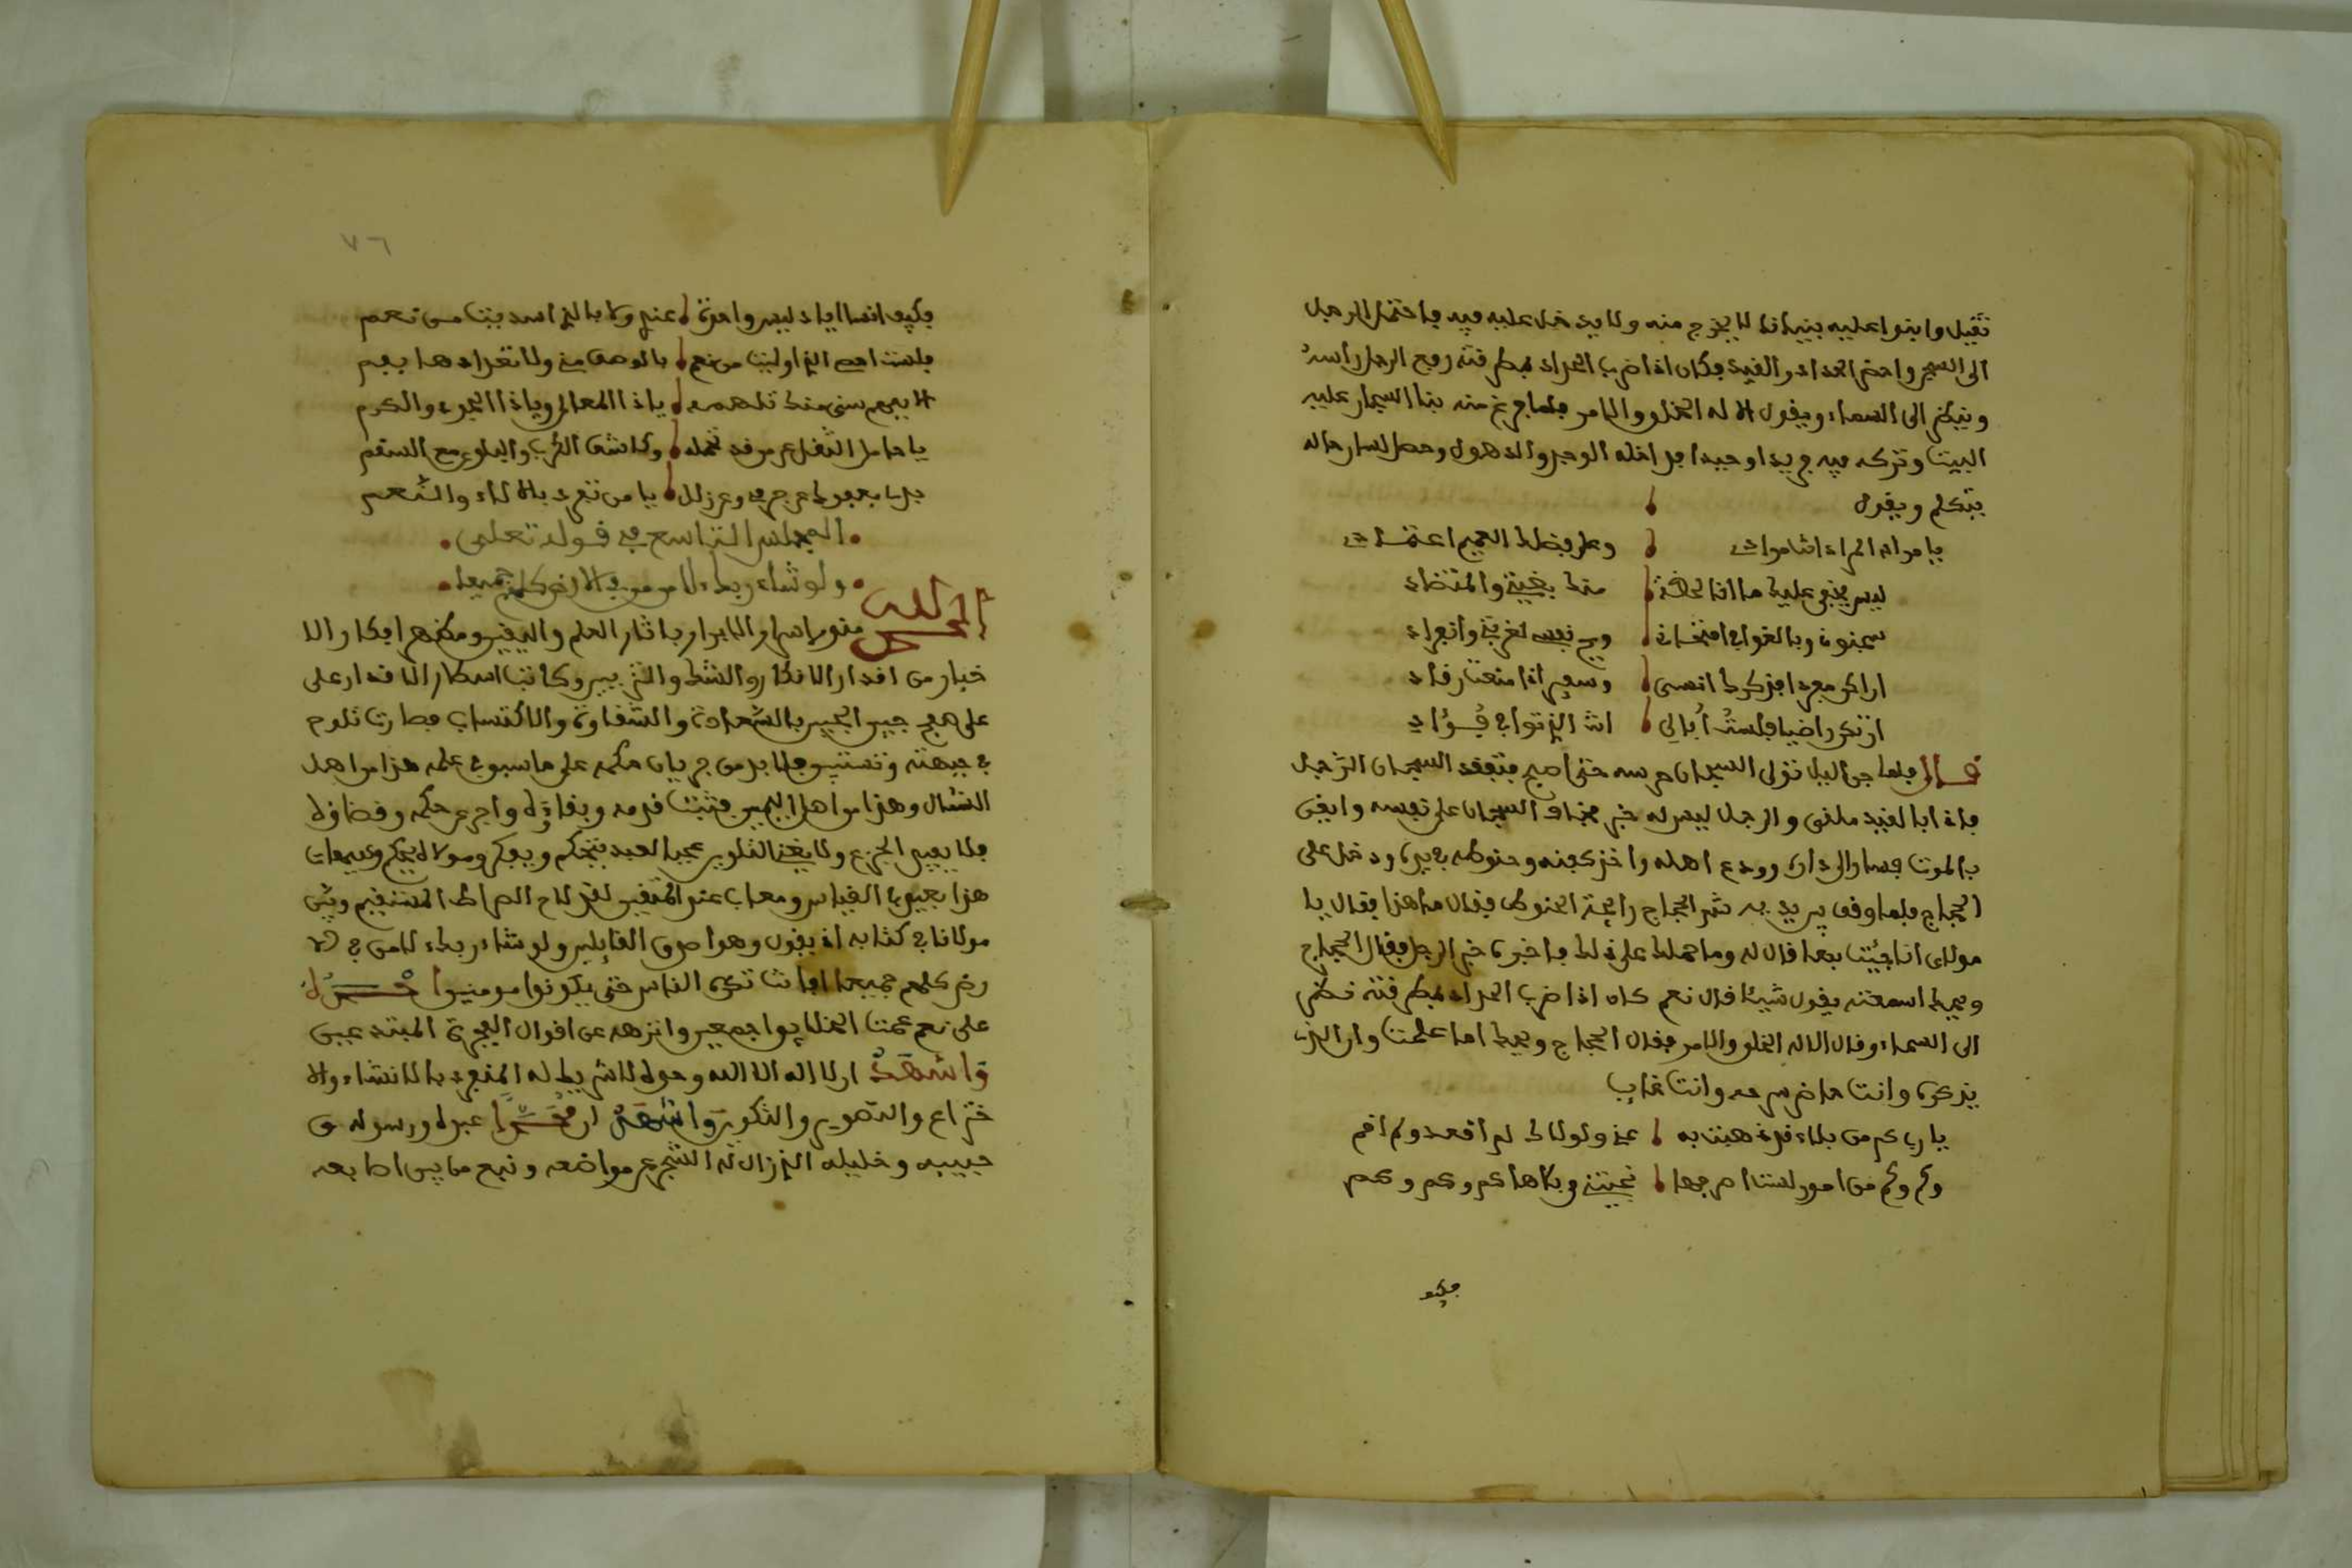 ثقيل وابنوا عليه بنيانا لا يخرج منه ولا يدخل عليه فيه فاحتمل الرجل
الى السجن واحضر الحداد والقيد فكان اذا ضرب الحداد بمطرقته رفع الرجل راسه
وينظر الى السماء ويقول الا له الخلق والامر فلما فرغ منه بنا السجان عليه
البيت وتركه فيه فريدا وحيدا الوجد والذهول لسان حاله
يتكلم ويقول
يا مراد المراد انت مرادي وعلى فضلك العميم اعتمادي
ليس يخفى عليك ما انا منك بغيتي والمقتضاد
سجنوني وبالغوا في امتحاني ويح نفسي لغربتي وانفرادي
ان اكن مفردا فذكرك انسي وسميري اذا منعت رقادي
ان تكن راضيا فلست أبالي انت الذي توا في فؤادي
قال فلما جن اليل تولى السجان حرسه حتى اصبح فتفقد السجان الرجل
فاذا بالقيد ملقى والرجل ليس له خبر فخاف السجان على نفسه وايقن
بالموت فسار الى داره وودع اهله واخذ كفنه وحنوطه في يده ودخل على
الحجاج فلما وقف بين يديه شم الحجاج رايحة الحنوط فقال ما هذا فقال يا
مولاي انا جئت بها قال له وما حملك على ذلك فاخبره خبر الرجل فقال الحجاج
ويحك اسمعته يقول شيئا قال نعم كان اذا ضرب الحداد بمطرقته نظر
الى السماء وقال الا له الخلق والامر فقال الحجاج ويحك اما علمت وان الذي
يذكره وانت حاضر سرحه وانت غايب
يا رب كم من بلاء قد ذهبت به عني ولولاك لم اقعد ولم اقم
وكم وكم من امور لست احرجها نجيتني وبلاها كم وكم وكم
فكيف
٧٦
فكيف انسا اياد ليس واحدة عندي وكا بالذي اسديت من نعم
فلست احصي الذي اوليت من نعم بالوصف مني ولا تعدادها بفم
الا بمعرفتي منك تلهمه ياذا المعالي وياذا الجود والكرم
يا حامل الثقل عن من قد تحمله وكاشف الكرب والبلوى مع السقم
يا من تفرد بالالاء والنعم
المجلس التاسع في قوله تعلى
ولو شاء ربك لامن من في الارض كلهم جميعا
الحمد لله منور اسرار الابرار باثار العلم واليقين ومطهر ابكار الا
خيار من اقدار الانكار والشك والتزيين وكاتب اسطار الاقدار على
على صفح جبين الجنين بالسعادة والشقاوة والاكتساب فصارت تلوح
في جبهته وتستبين فلا بد من جريان حكمه على ما سبق في علمه هذا من اهل
الشمال وهذا من اهل اليمين فثبت قدمه وبقاؤه واجرى حكمه وقضاؤه
فلا يفيد الجزع ولا يغني التلوين عجبا لعبد يتحكم ويفكر ومولاه يحكم
هذا بعيون القياس ومعاب عند المتقين لقد لاح الصراط المستقيم وبين
مولانا في كتابه اذ يقول وهو اصدق القايلين ولو شاء ربك لامن في الا
رض كلهم جميعا افانت تكره الناس حتى يكونوا مومنين احمده
على نعم عمت الخلايق اجمعين وانزهه عن اقوال الفجرة المبتدعين
واشهد ان لا اله الا الله وحده لا شريك له المنفرد بالانشاء والا
ختراع والتصوير والتكوين واشهد ان محمدا عبده ورسوله
حبيبه وخليله الذي زالت له الشجر عن مواضعه ونبع من بين اصابعه